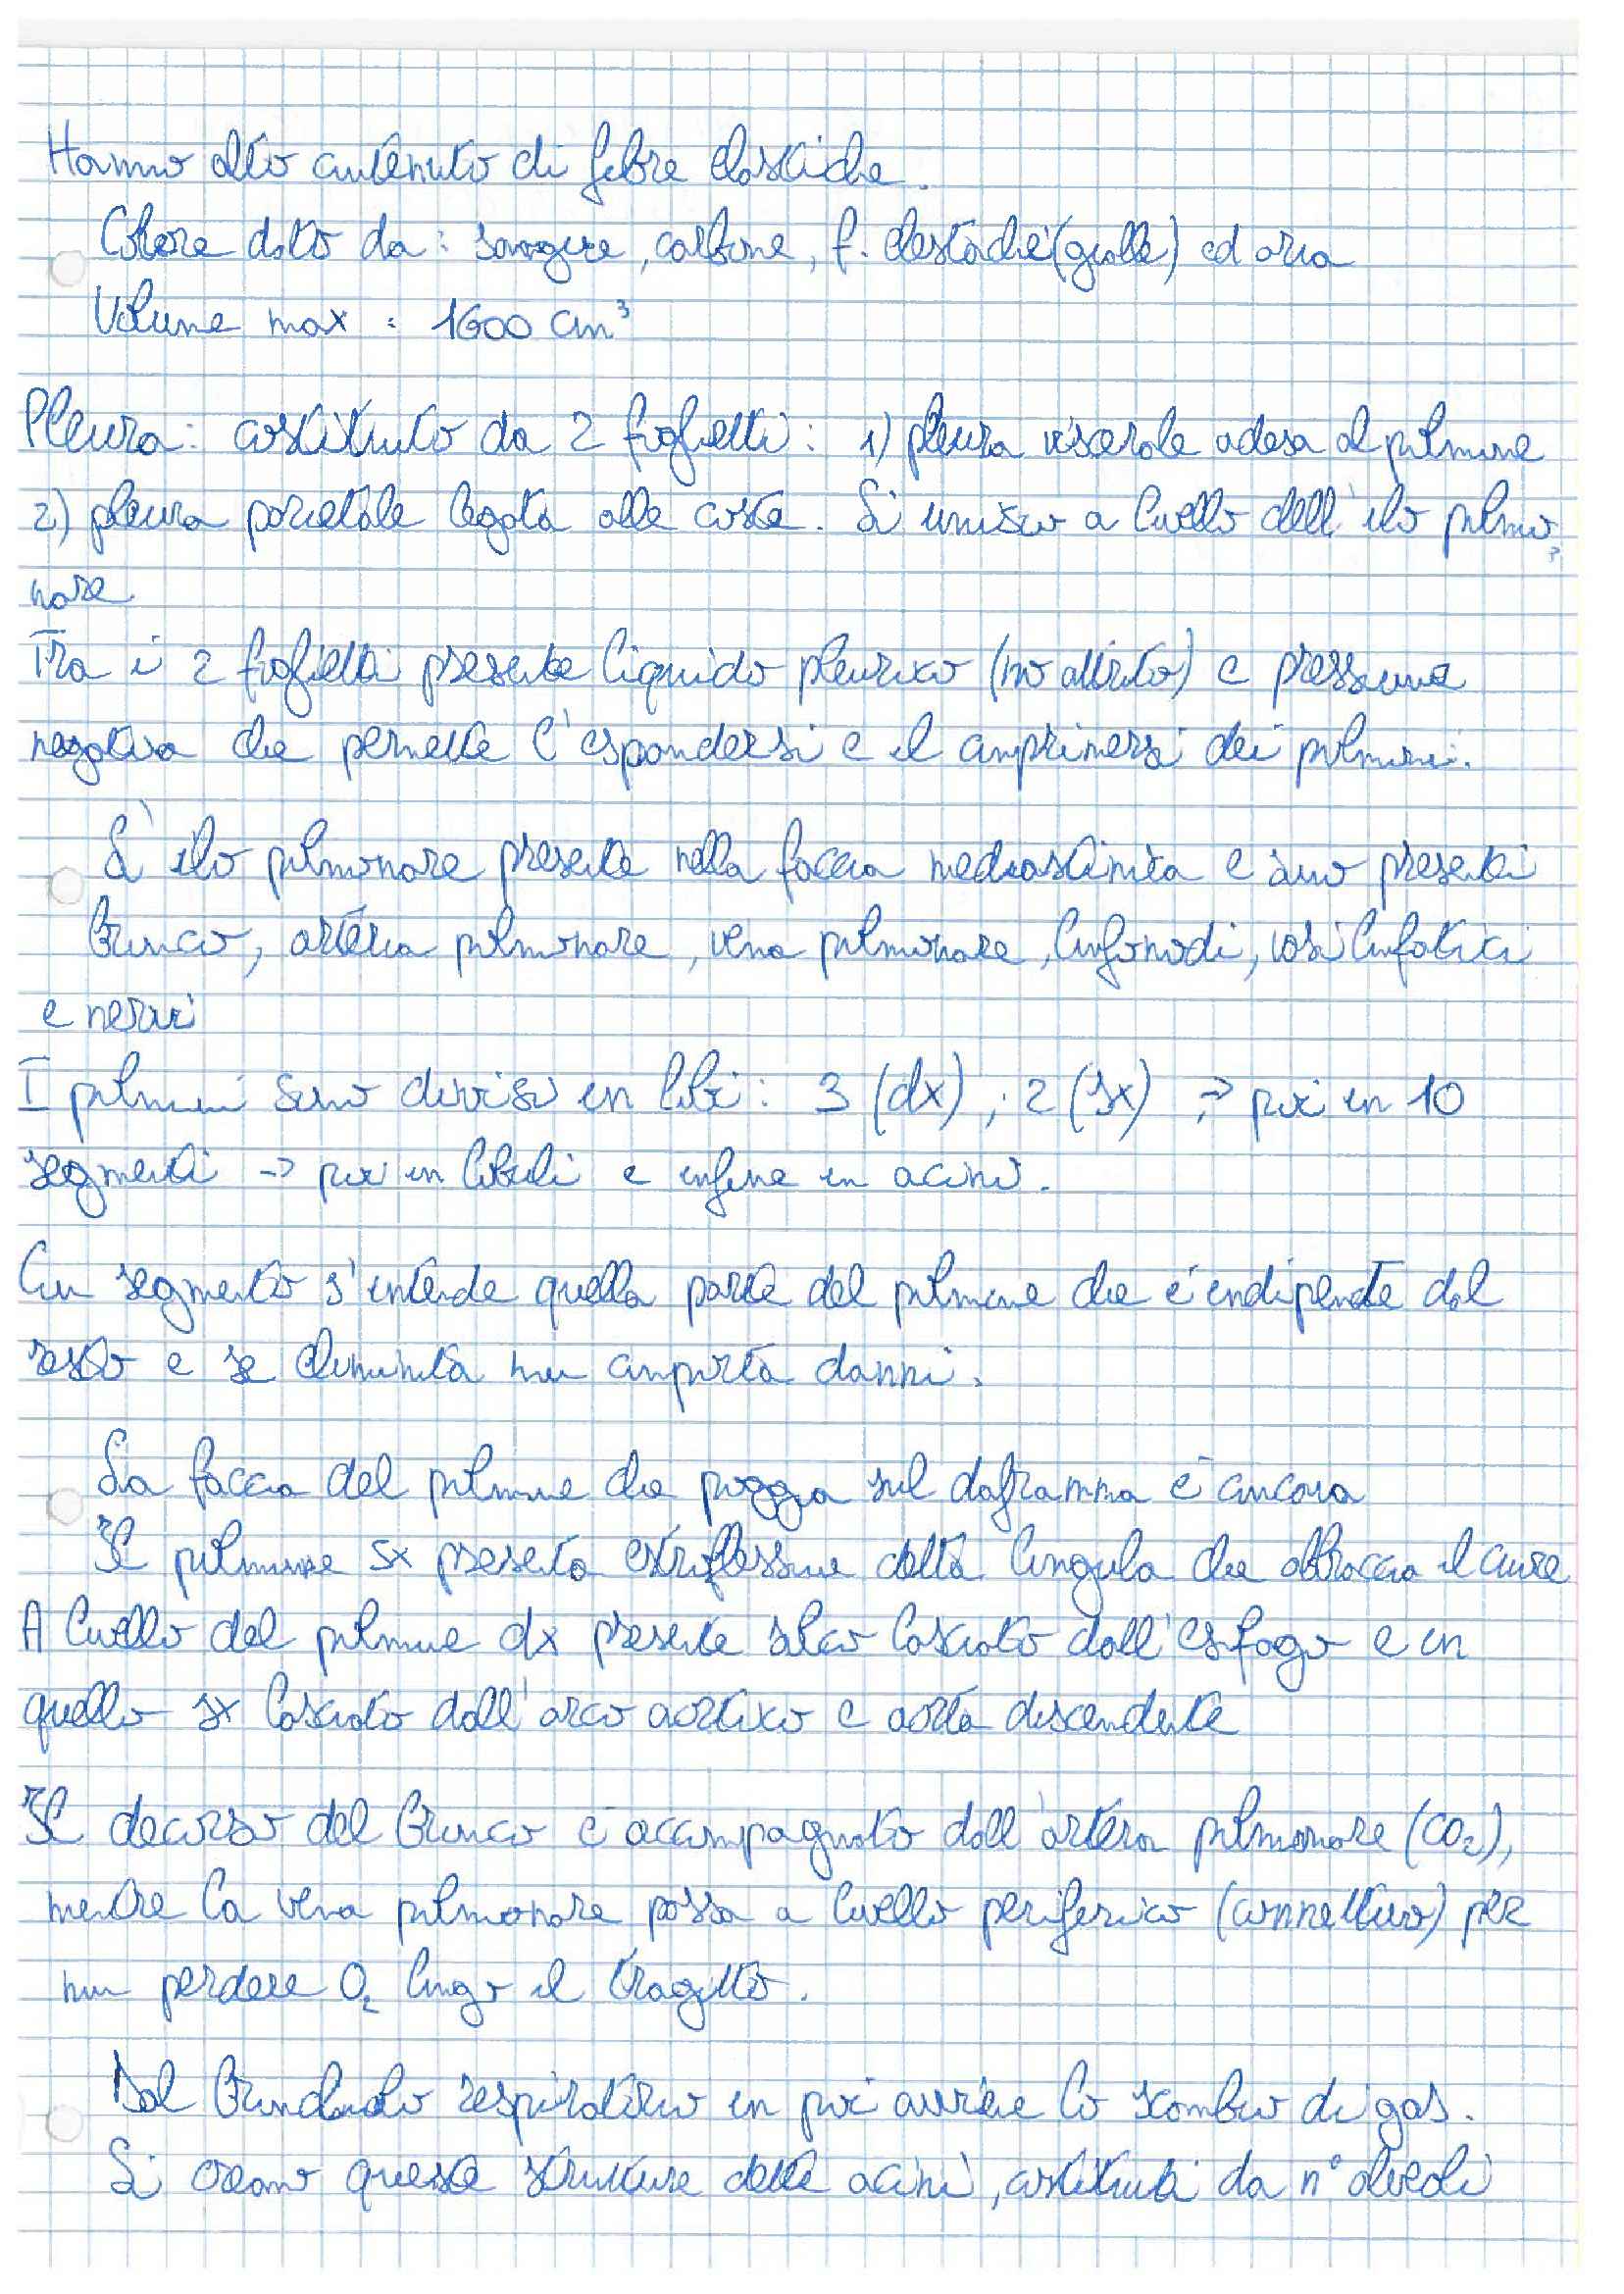 Hanno alto contenuto di fibre elastiche.
Colore dato da: sangue, carbone, f. elastiche (gialle) ed aria
Volume max = 1600 cm³
Pleura: costituito da 2 foglietti: 1) pleura viscerale adesa al polmone
2) pleura parietale legata alle coste. Si unisco a livello dell'ilo polmo
nare
Tra i 2 foglietti presente liquido pleurico (no attrito) e pressione
negativa che permette l'espandersi e il comprimersi dei polmoni.
L'ilo polmonare presente nella faccia mediastinica e sono presenti
bronco, arteria polmonare, vena polmonare, linfonodi, vasi linfatici
e nervi
I polmoni sono divisi in lobi: 3 (dx), 2 (sx) → poi in 10
segmenti → poi in lobuli e infine in acini.
Con segmento s'intende quella parte del polmone che è indipendete dal
resto e se eliminita non comporta danni.
La faccia del polmone che poggia sul diaframma è concava
Il polmone sx presenta estroflessione detta lingula che abbraccia il cuore
A livello del polmone dx presente solco lasciato dall'esofago e in
quello sx lasciato dall'arco aortico e aorta discendente
Il decorso del bronco è accompagnato dall'arteria polmonare (CO₂),
mentre la vena polmonare passa a livello periferico (connettivo) per
non perdere O₂ lungo il tragitto.
Dal bronchiolo respiratorio in poi avviene lo scambio di gas.
Si creano queste strutture dette acini, costituiti da n° alveoli